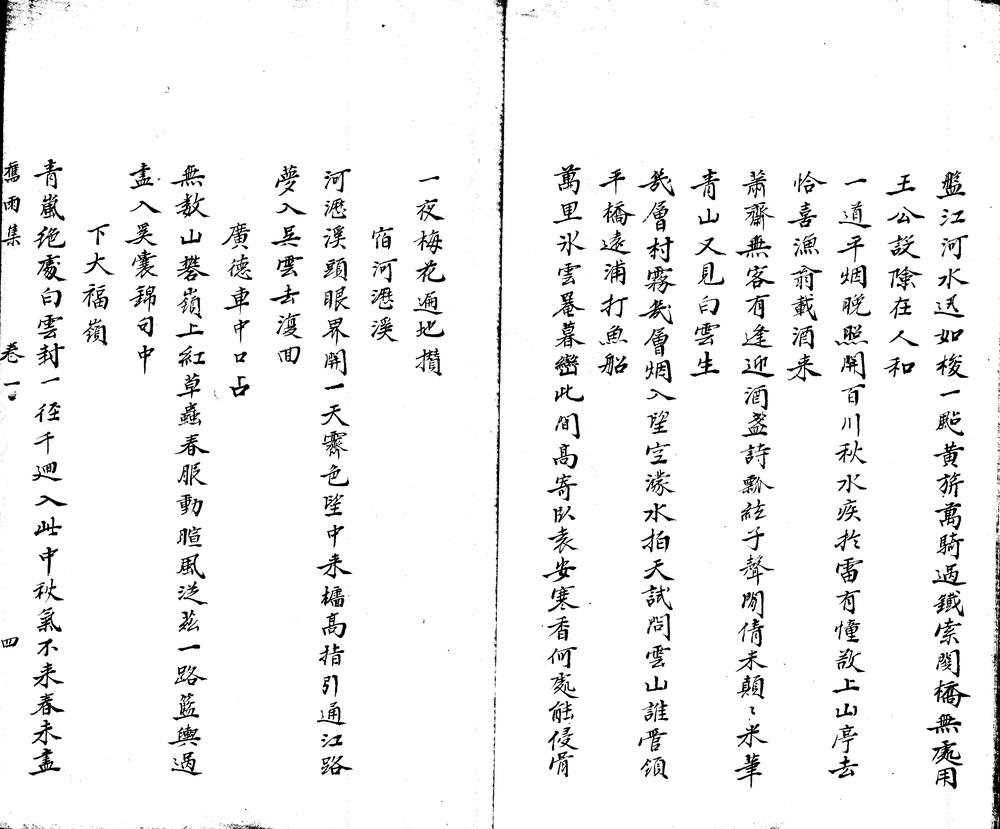 盤江河水迅如梭一點黄旂萬騎過鐵索関橋無處用
王公設險在人和
一道平烟晚照開百川秋水疾扵雷有憧敲上山亭去
恰喜漁翁載酒来
蕭齋無客有逢迎酒盞詩瓢紜子聲閒倩米顛〻米筆
青山又見白雲生
幾層村霧幾層烟入望空濛水拍天試問雲山誰管領
平橋遠浦打魚船
萬里氷雲羃暮巒此間髙寄卧袁安寒香何處能侵骨
一夜梅花遍地攢
宿河瀝溪
河瀝溪頭眼界開一天霽色望中来檣髙指引通江路
夢入吴雲去復回
廣德車中口占
無数山礬嶺上紅草蟲春服動暄風従兹一路籃輿過
盡入奚囊錦句中
下大福嶺
青嵐绝處白雲封一徑千迴入此中秋氣不来春未盡
舊雨集 卷一 四